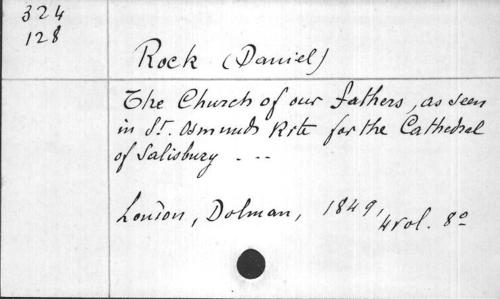 324
128
Rock (Daniel)
The Church of our Fathers, as seen
in St. Osmund's Rite for the Cathedral
of Salisbury - --
London, Dolman, 1849,
4 vol. 8º